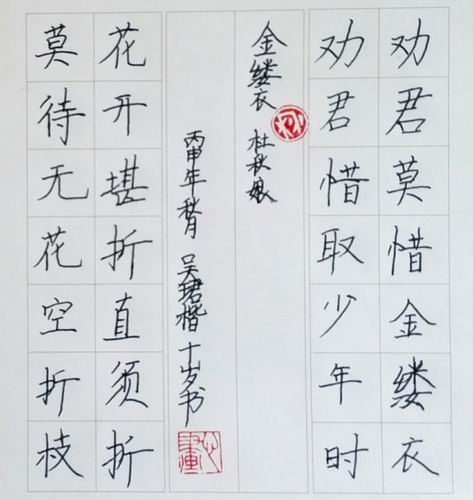 劝君莫惜金缕衣
劝君惜取少年时
金缕衣 杜秋娘
丙申年秋月 吴珺楷 十岁书
花开堪折直须折
莫待无花空折枝